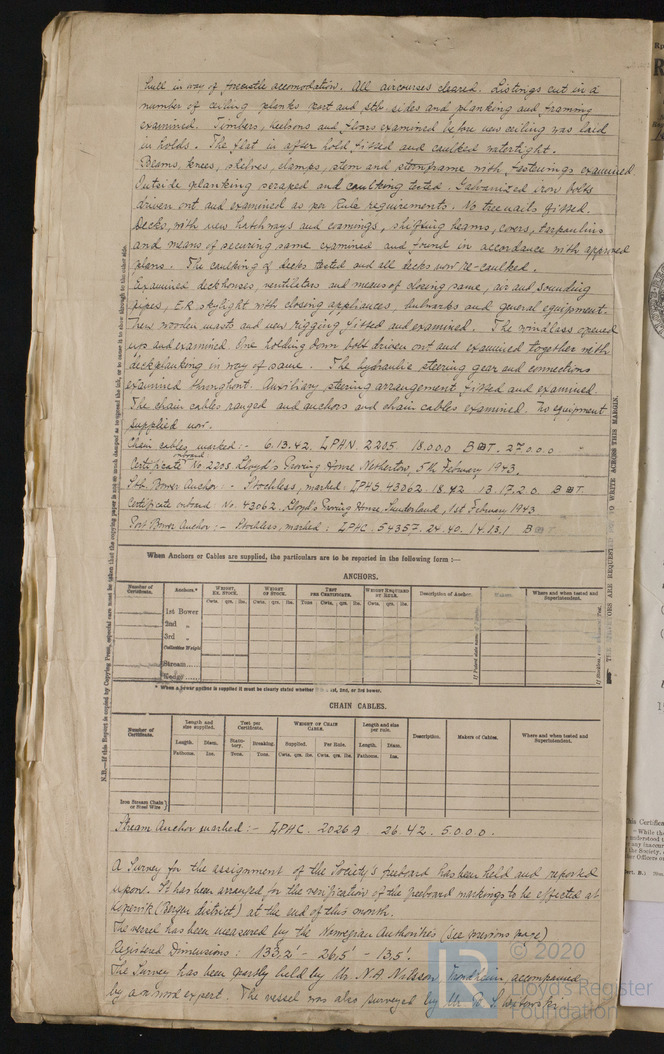 hull in way of forecastle accomodation. All aircourses cleared. Listings cut in a
number of ceiling planks port and stb sides and planking and framing
examined. Timbers, keelsons and floors examined before new ceiling was laid
in holds. The flat in after hold fitted and caulked watertight.
Beams, knees, shelves, clamps, stem and sternframe with fastenings examined
Outside planking scraped and caulking tested. Galvanized iron bolts
driven out and examined as per Rule requirements. No treenails fitted.
Decks, with new hatchways and comings, shifting beams, covers, tarpaulins
and means of securing same examined and found in accordance with approved
plans. The caulking of decks tested and all decks now re-caulked.
Examined deckhouses, ventilators and means of closing same, air and sounding
pipes, E.R. skylight with closing appliances, bulwarks and general equipment.
New wooden masts and new rigging fitted and examined. The windlass opened
up and examined. One holding down bolt driven out and examined together with
deckplanking in way of same. The hydraulic steering gear and connections
examined throughout. Auxiliary steering arrangement fitted and examined.
The chain cables ranged and anchors and chain cables examined. No equipment
supplied now.
Chain cables marked :- 6.13.42. LPHN. 2205. 18.0.0.0 B T. 27.0.0.0
Certificate onboard No. 2205. Lloyd's Proving House Netherton 5th February 1943.
Stb. Bower Anchor :- Stockless, marked: LPHS. 43062. 18.42 13.17.2.0. B T.
Certificate onboard: No. 43062. Lloyd's Proving House, Sunderland, 1st February 1943
Port Bower Anchor :- Stockless, marked: LPHC. 54357. 24.40. 14.13.1 B
When Anchors or Cables are supplied, the particulars are to be reported in the following form :—
ANCHORS.
Number of Certificate. Anchors.* WEIGHT, EX. STOCK. WEIGHT OF STOCK. TEST PER CERTIFICATE. WEIGHT REQUIRED BY RULE. Description of Anchor. Where and when tested and Superintendent.
Cwts. qrs. lbs. Cwts. qrs. lbs. Tons Cwts. qrs. lbs. Cwts. qrs. lbs.
1st Bower
2nd "
3rd "
Collective Weight
Stream
Kedge
* When a bower anchor is supplied it must be clearly stated whether 1st, 2nd, or 3rd bower.
CHAIN CABLES.
Number of Certificate. Length and size supplied. Test per Certificate. WEIGHT OF CHAIN CABLE. Length and size per rule. Description. Makers of Cables. Where and when tested and Superintendent.
Length. Diam. Statutory. Breaking. Supplied. Per Rule. Length. Diam.
Fathoms. Ins. Tons. Tons. Cwts. qrs. lbs. Cwts. qrs. lbs. Fathoms. Ins.
Iron Stream Chain or Steel Wire
Stream Anchor marked :- LPHC. 2026A 26.42. 5.0.0.0.
A Survey for the assignment of the Society's freeboard has been held and reported
upon. It has been arranged for the verification of the freeboard markings to be effected at
Kopervik (Bergen district) at the end of this month.
The vessel has been measured by the Norwegian Authorities (see previous page)
Registered Dimensions: 133,2' - 26,5' - 13,5'.
The Survey has been partly held by Mr. N.A. Nilssen, Trondheim, accompanied
by a wood expert. The vessel was also surveyed by Mr.
N.B.—If this Report is copied by Copying Press, especial care must be taken that the copying paper is not so much damped as to spread the ink, or to cause it to show through to the other side.
THE SURVEYORS ARE REQUESTED NOT TO WRITE ACROSS THIS MARGIN.
© 2020
Lloyd's Register
Foundation
LR